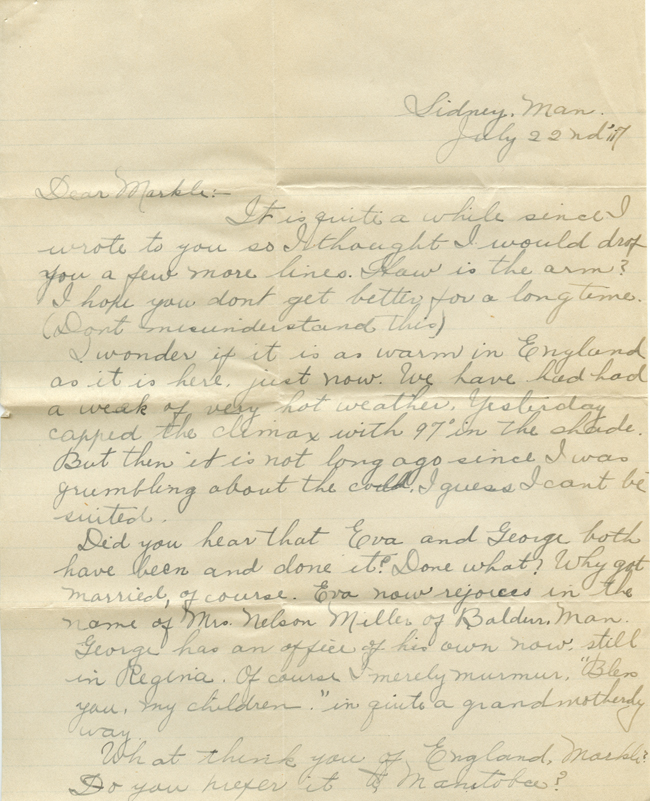 Sidney, Man.
July 22nd '17
Dear Markle:-
It is quite a while since I
wrote to you so I thought I would drop
you a few more lines. How is the arm?
I hope you dont get better for a long time.
(Dont misunderstand this)
I wonder if it is as warm in England
as it is here, just now. We have had had
a weak of very hot weather. Yesterday
capped the climax with 97° in the shade.
But then it is not long ago since I was
grumbling about the cold. I guess I cant be
suited.
Did you hear that Eva and George both
have been and done it? Done what? Why got
married, of course. Eva now rejoices in the
name of Mrs. Nelson Miller of Baldur, Man.
George has an office of his own now, still
in Regina. Of course I merely murmur, "Bless
you, my children." in quite a grandmotherly
way.
What think you of England, Markle?
Do you prefer it to Manitoba?